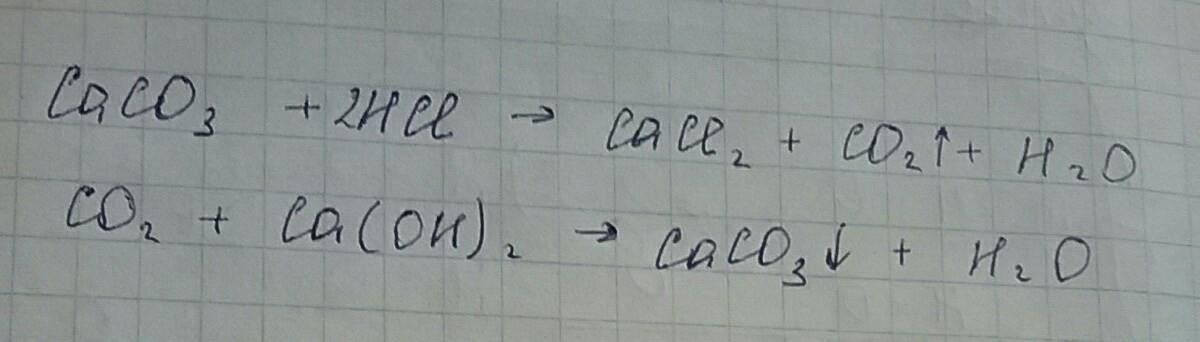 CaCO₃ + 2HCl → CaCl₂ + CO₂↑ + H₂O
CO₂ + Ca(OH)₂ → CaCO₃↓ + H₂O